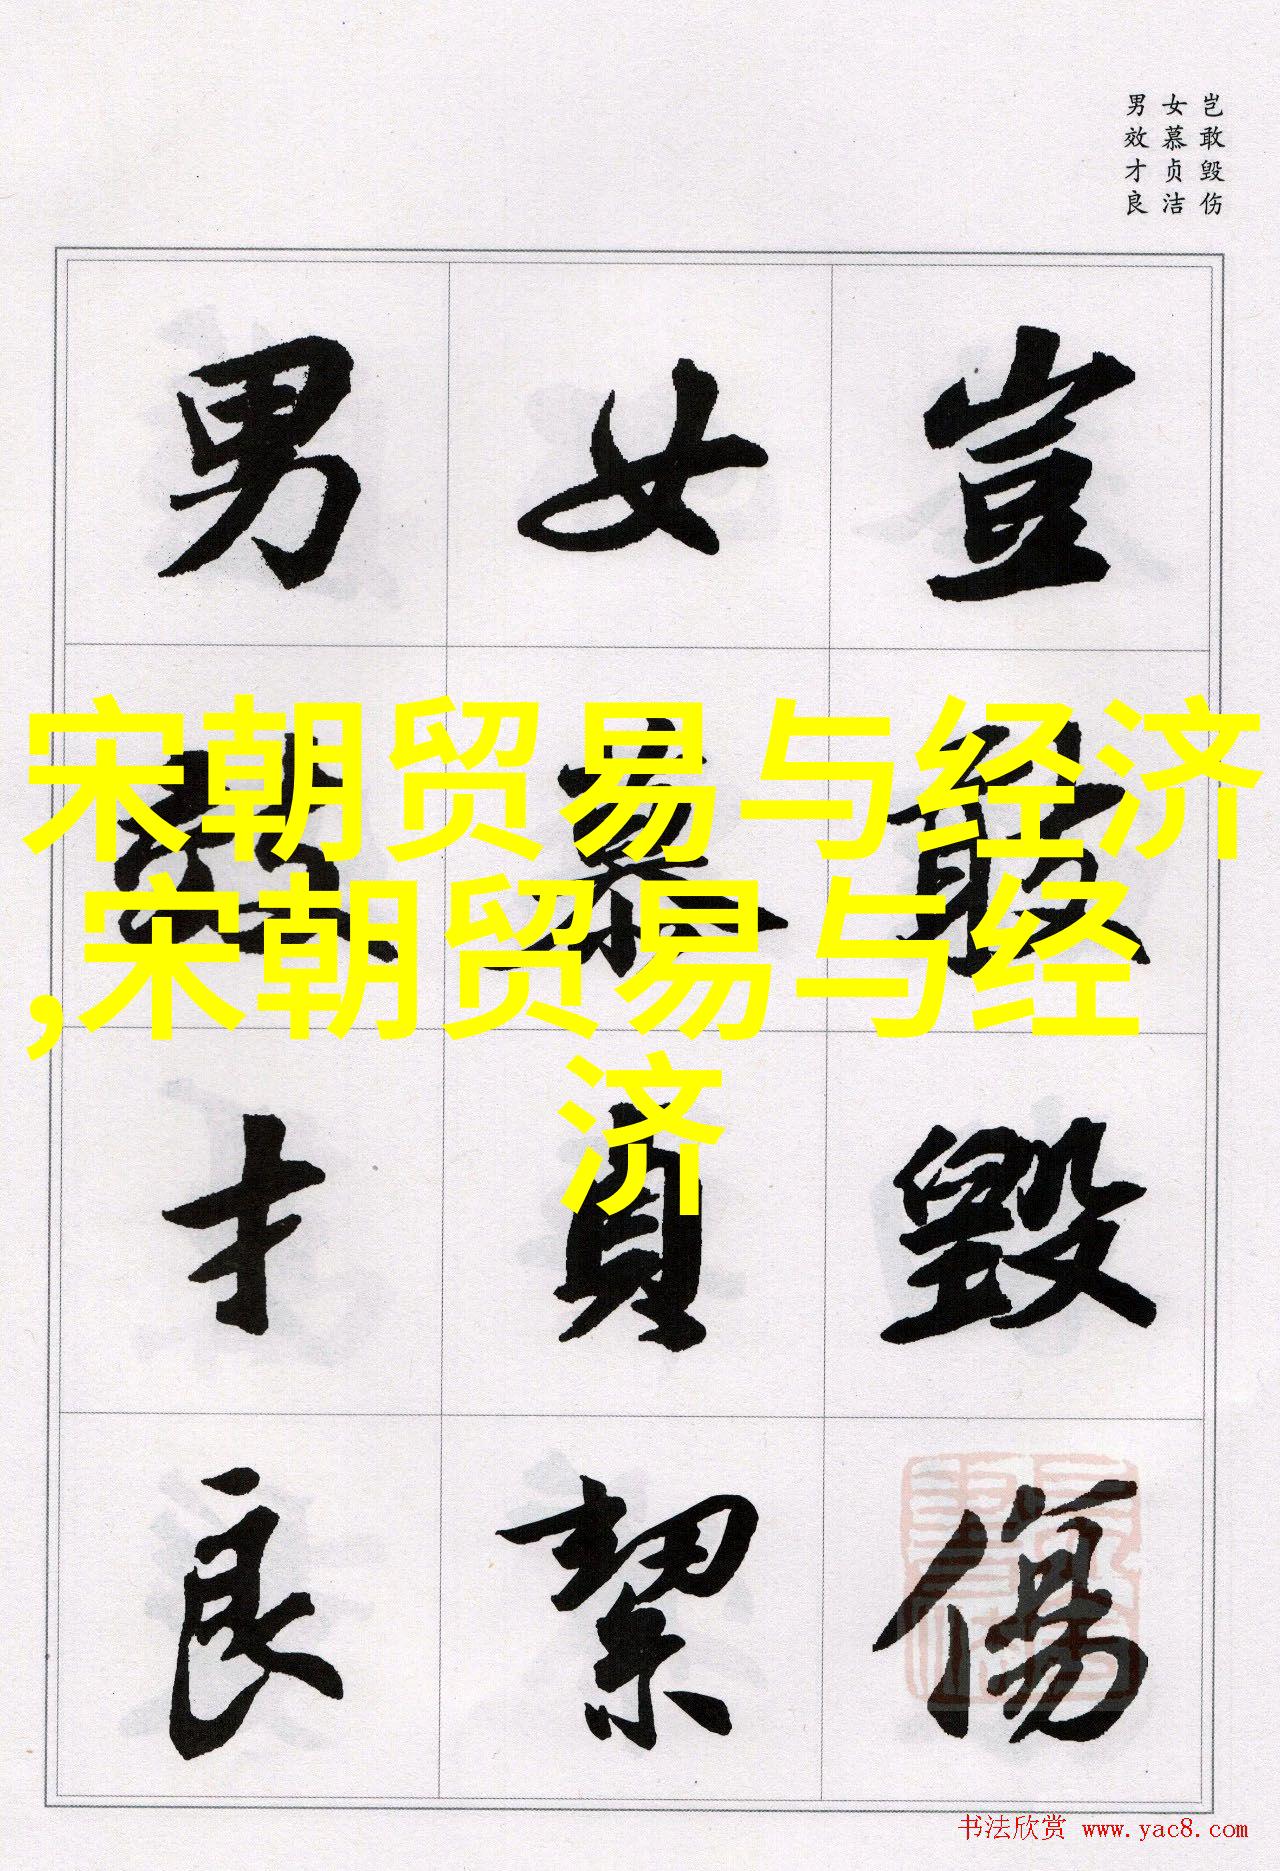 岂敢毁伤
女慕贞洁
男效才良
豈敢毀傷
女慕貞絜
男效才良
宋朝贸易与经济
,宋朝贸易与经
济
书法欣赏 www.yac8.com